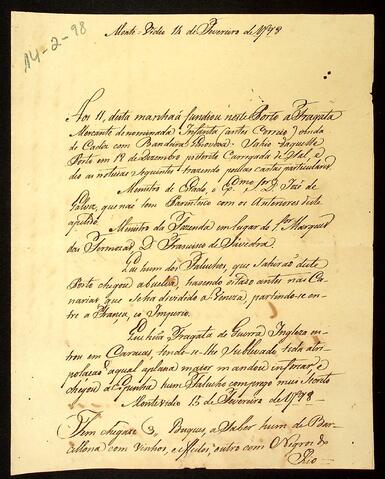 14-2-98
Monte-Video 14 de Fevereiro de 1798
Aos 11, desta manhaã fundiou neste Porto a Fragata
Mercante denominada Infanta (antes Correio) vinda
de Cadiz com Bandeira Genoveza. Sahio daquelle
Porto em 12 de Dezembro preterito Carregada de Sal, e
dis as noticias seguintes trazendo poucas cartas particulares
Ministro de Estado, o D. Jozé de
Galvez, que naõ tem Parentesco com os Anteriores deste
apelido.
Ministro da Fazenda em lugar do Marques
das Hormazas D. Francisco de Saavedra.
Que hum dos Faluchos, que sahiraõ deste
Porto chegou a trazendo antes nas Ca-
narias, que se ha dividido a Veneza, partindo-se en-
tre a França, e o Imperio.
Que huã Fragata de Guerra Ingleza en-
trou em Caracas, tendo-se-lhe Sublevado toda a tri-
polaçaõ aqual a plana maior mandou enforcar, e
chegou a Espanha hum Falucho com
Montevideo 15 de Fevereiro de 1798
Tem chegado 3, Buques, a Saber hum de Bar-
cellona com vinhos, e effeitos, outro com Negros do
Rio